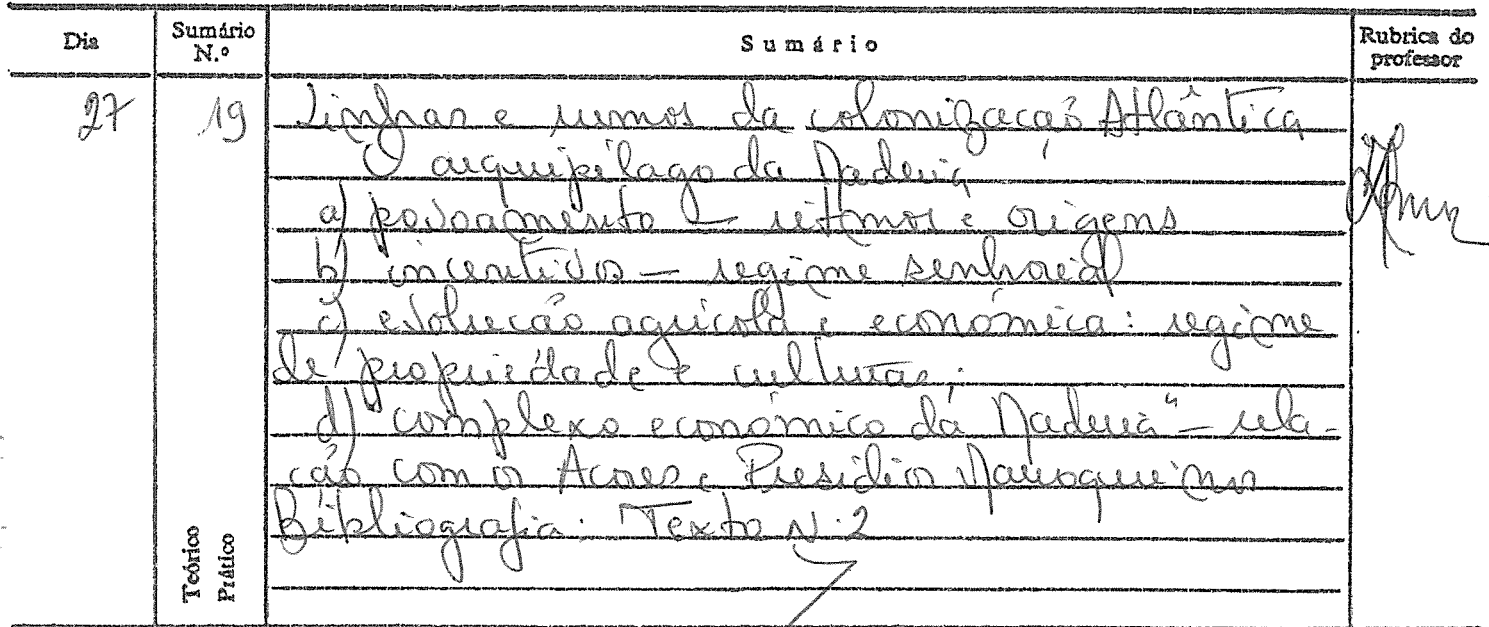 Dia
Sumário N.º
Sumário
Rubrica do professor
27
19
Linhas e rumos da colonização Atlântica
O arquipélago da Madeira
a) povoamento – ritmos e origens
b) incentivos – regime senhorial
c) evolução agrícola e económica: regime
de propriedade e culturas;
d) "complexo económico da Madeira" – rela-
ção com os Açores e Presídios Marroquinos
Bibliografia: Texto N.2
Teórico
Prático